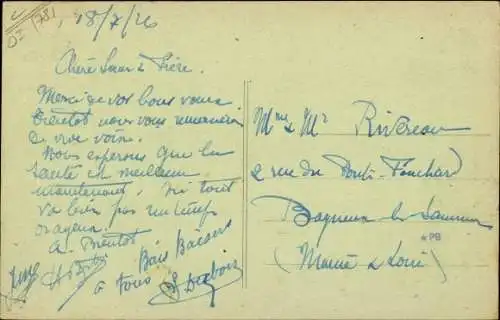 18/7/26
Chère Sœur & Frère.
Merci de vos bons vœux
Bientôt nous vous remercierons
de vive voix.
Nous espérons que la
santé est meilleure
maintenant. Ici tout
va bien pas un temps
orageux.
A Bientôt
Bons Baisers
à tous
Dubois
Mme & Mr Rivereau
2 rue du Pont-Fouchard
Bagneux les Saumur
(Maine & Loire)
*PB